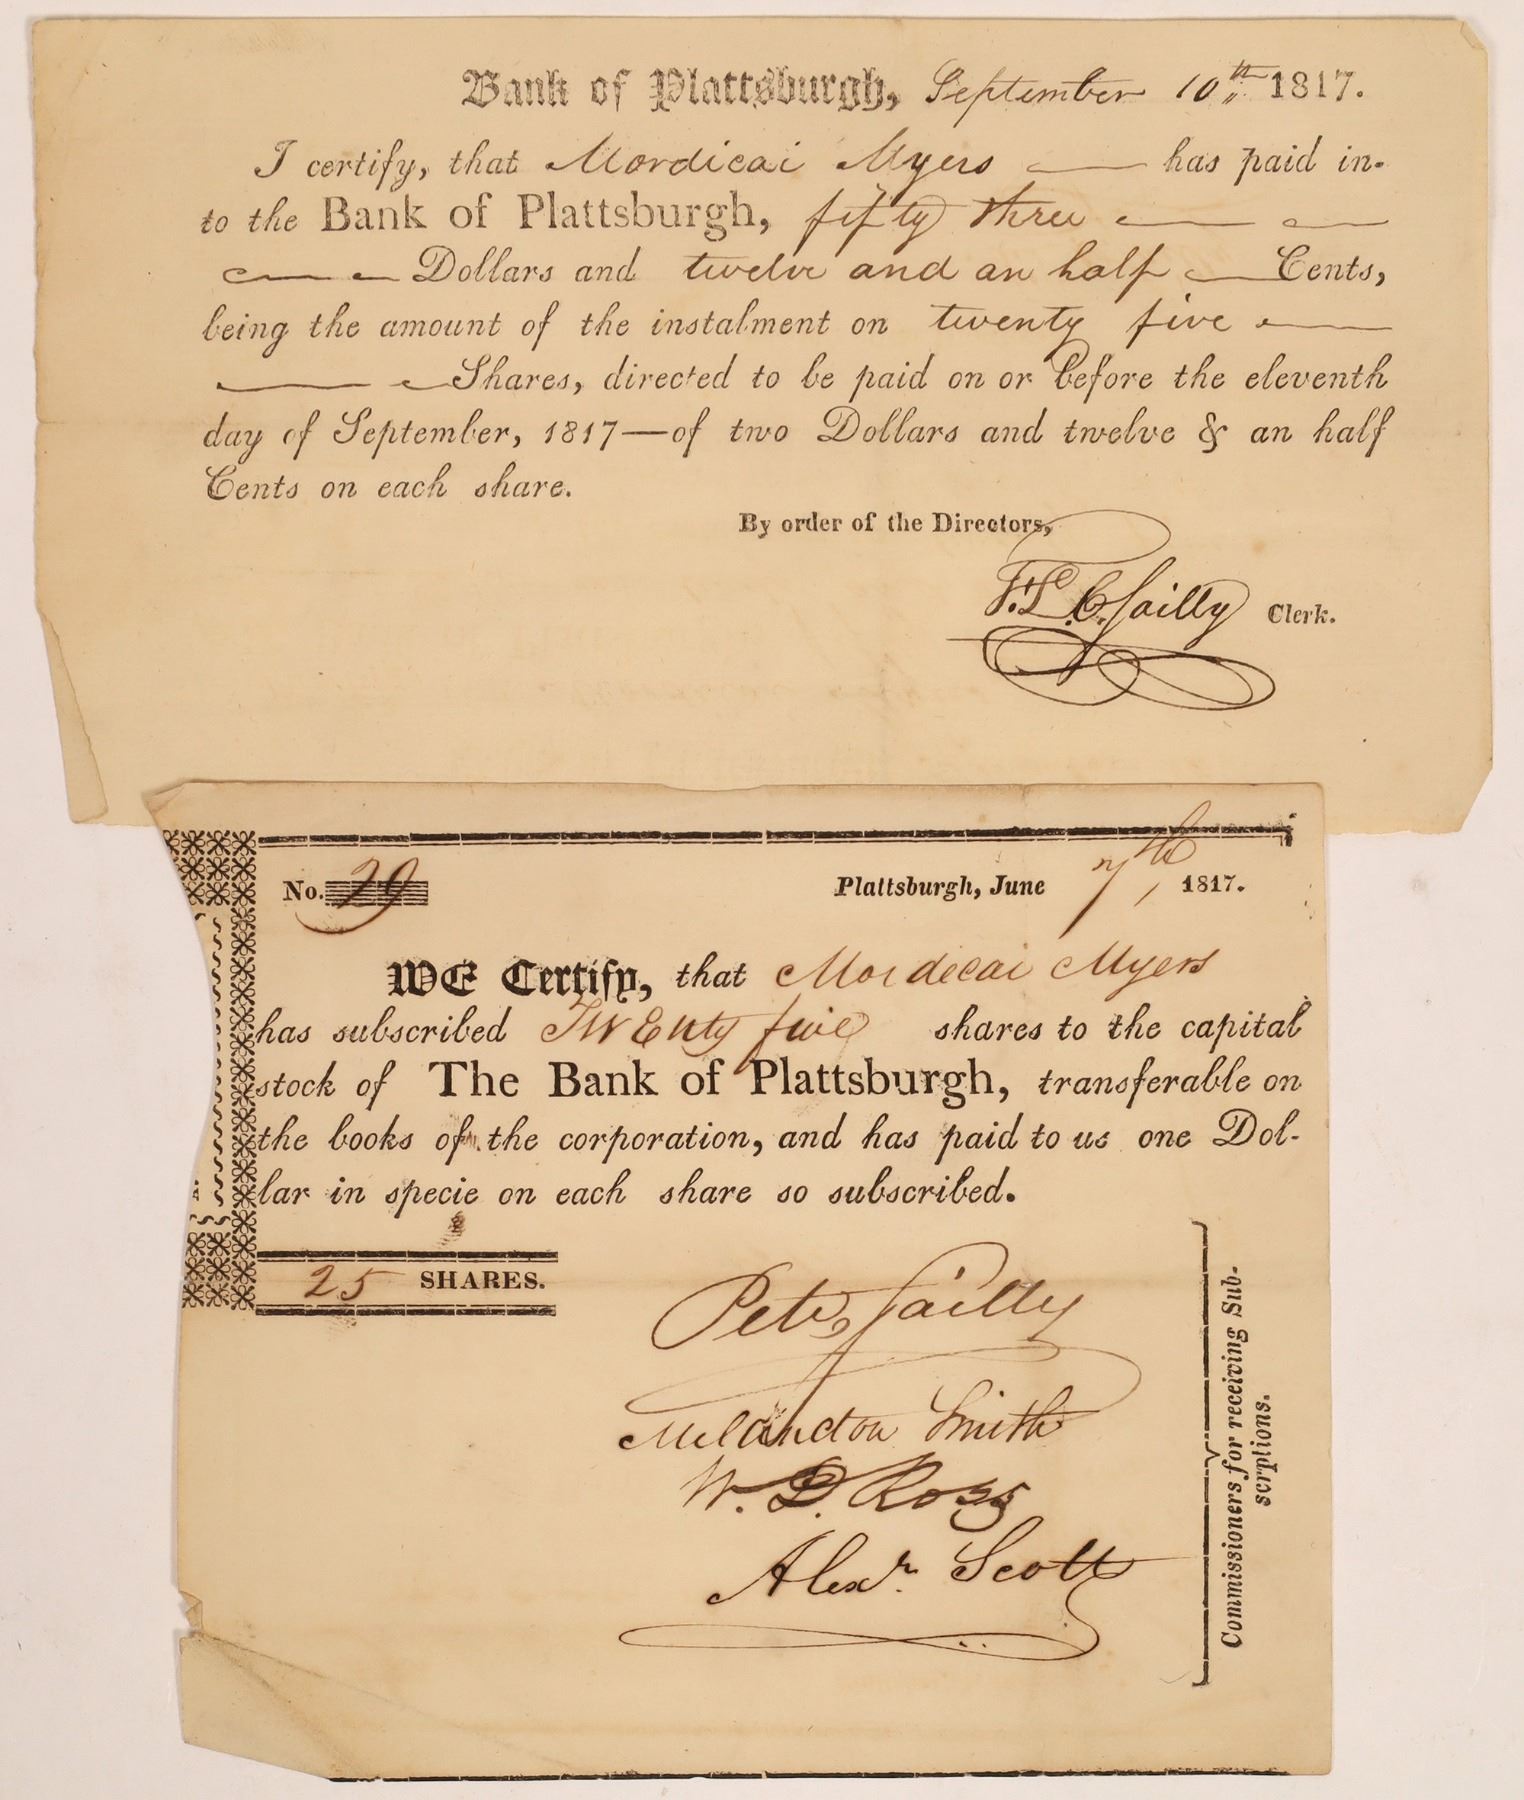 Bank of Plattsburgh, September 10th 1817.
I certify, that Mordicai Myers has paid in-
to the Bank of Plattsburgh, fifty three
Dollars and twelve and an half Cents,
being the amount of the instalment on twenty five
Shares, directed to be paid on or before the eleventh
day of September, 1817—of two Dollars and twelve & an half
Cents on each share.
By order of the Directors,
F. L. C. Sailly Clerk.
No. 29 Plattsburgh, June 7th, 1817.
WE Certify, that Mordecai Myers
has subscribed Twenty five shares to the capital
stock of The Bank of Plattsburgh, transferable on
the books of the corporation, and has paid to us one Dol-
lar in specie on each share so subscribed.
25 SHARES.
Peter Sailly
Melancton Smith
W. D. Ross
Alexr. Scott
Commissioners for receiving Sub-
scrptions.